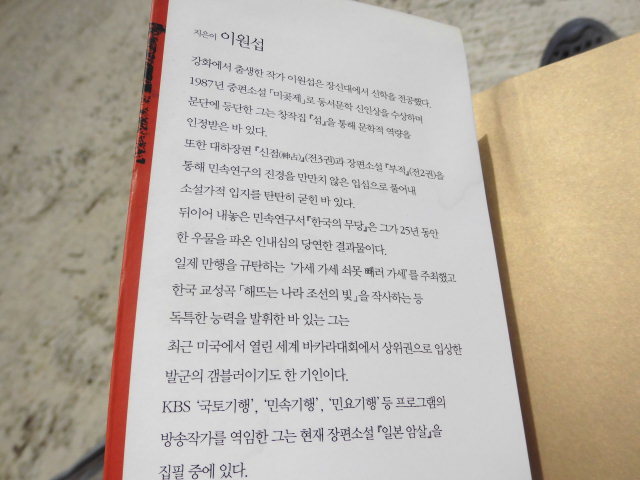 지은이 이원섭
강화에서 출생한 작가 이원섭은 장신대에서 신학을 전공했다.
1987년 중편소설 「미곶제」로 동서문학 신인상을 수상하며
문단에 등단한 그는 창작집 『섬』을 통해 문학적 역량을
인정받은 바 있다.
또한 대하장편 『신점(神占)』(전3권)과 장편소설 『부적』(전2권)을
통해 민속연구의 진경을 만만치 않은 입심으로 풀어내
소설가적 입지를 탄탄히 굳힌 바 있다.
뒤이어 내놓은 민속연구서 『한국의 무당』은 그가 25년 동안
한 우물을 파온 인내심의 당연한 결과물이다.
일제 만행을 규탄하는 '가세 가세 쇠못 빼러 가세'를 주최했고
한국 교성곡 「해뜨는 나라 조선의 빛」을 작사하는 등
독특한 능력을 발휘한 바 있는 그는
최근 미국에서 열린 세계 바카라대회에서 상위권으로 입상한
발군의 갬블러이기도 한 기인이다.
KBS '국토기행', '민속기행', '민요기행' 등 프로그램의
방송작가를 역임한 그는 현재 장편소설 『일본 암살』을
집필 중에 있다.